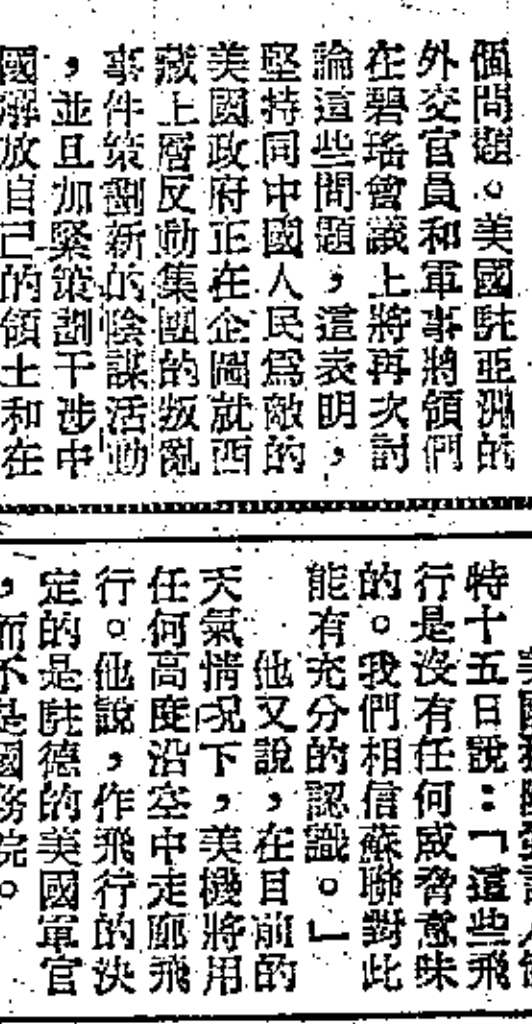 個問題。美國駐亞洲的
外交官員和軍事將領們
在碧瑤會議上將再次討
論這些問題，這表明，
堅持同中國人民爲敵的
美國政府正在企圖就西
藏上層反動集團的叛亂
事件策劃新的陰謀活動
，並且加緊策劃干涉中
國解放自己的領土和在
特十五日說：「這些飛
行是沒有任何威脅意味
的。我們相信蘇聯對此
能有充分的認識。」
他又說，在目前的
天氣情况下，美機將用
任何高度沿空中走廊飛
行。他說，作飛行的決
定的是駐德的美國軍官
，而不是國務院。